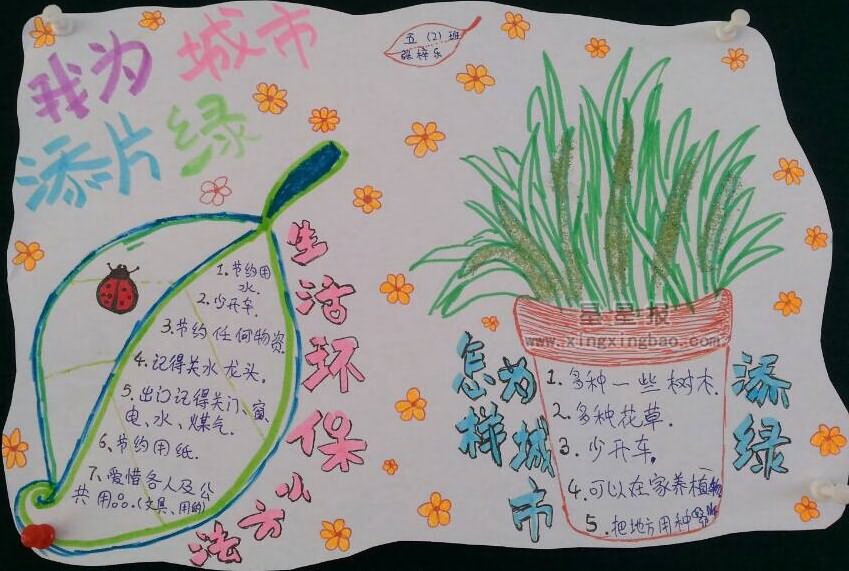 我为城市
添片绿
五（2）班
生活环保小方法
1.节约用
水.
2.少开车.
3.节约任何物资
4.记得关水龙头.
5.出门记得关门、窗、
电、水、煤气.
6.节约用纸.
7.爱惜各人及公
共用品.(文具、用的)
星星报
www.xingxingbao.com
怎样
为城市
添绿
1.多种一些树木.
2.多种花草.
3.少开车.
4.可以在家养植物
5.把地方用种